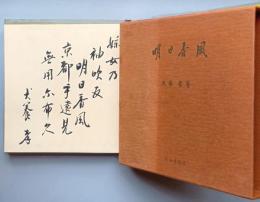 婇女乃
袖吹反
明日香風
京都乎遠見
無用尓布久
犬養孝
明日香風
犬養孝著